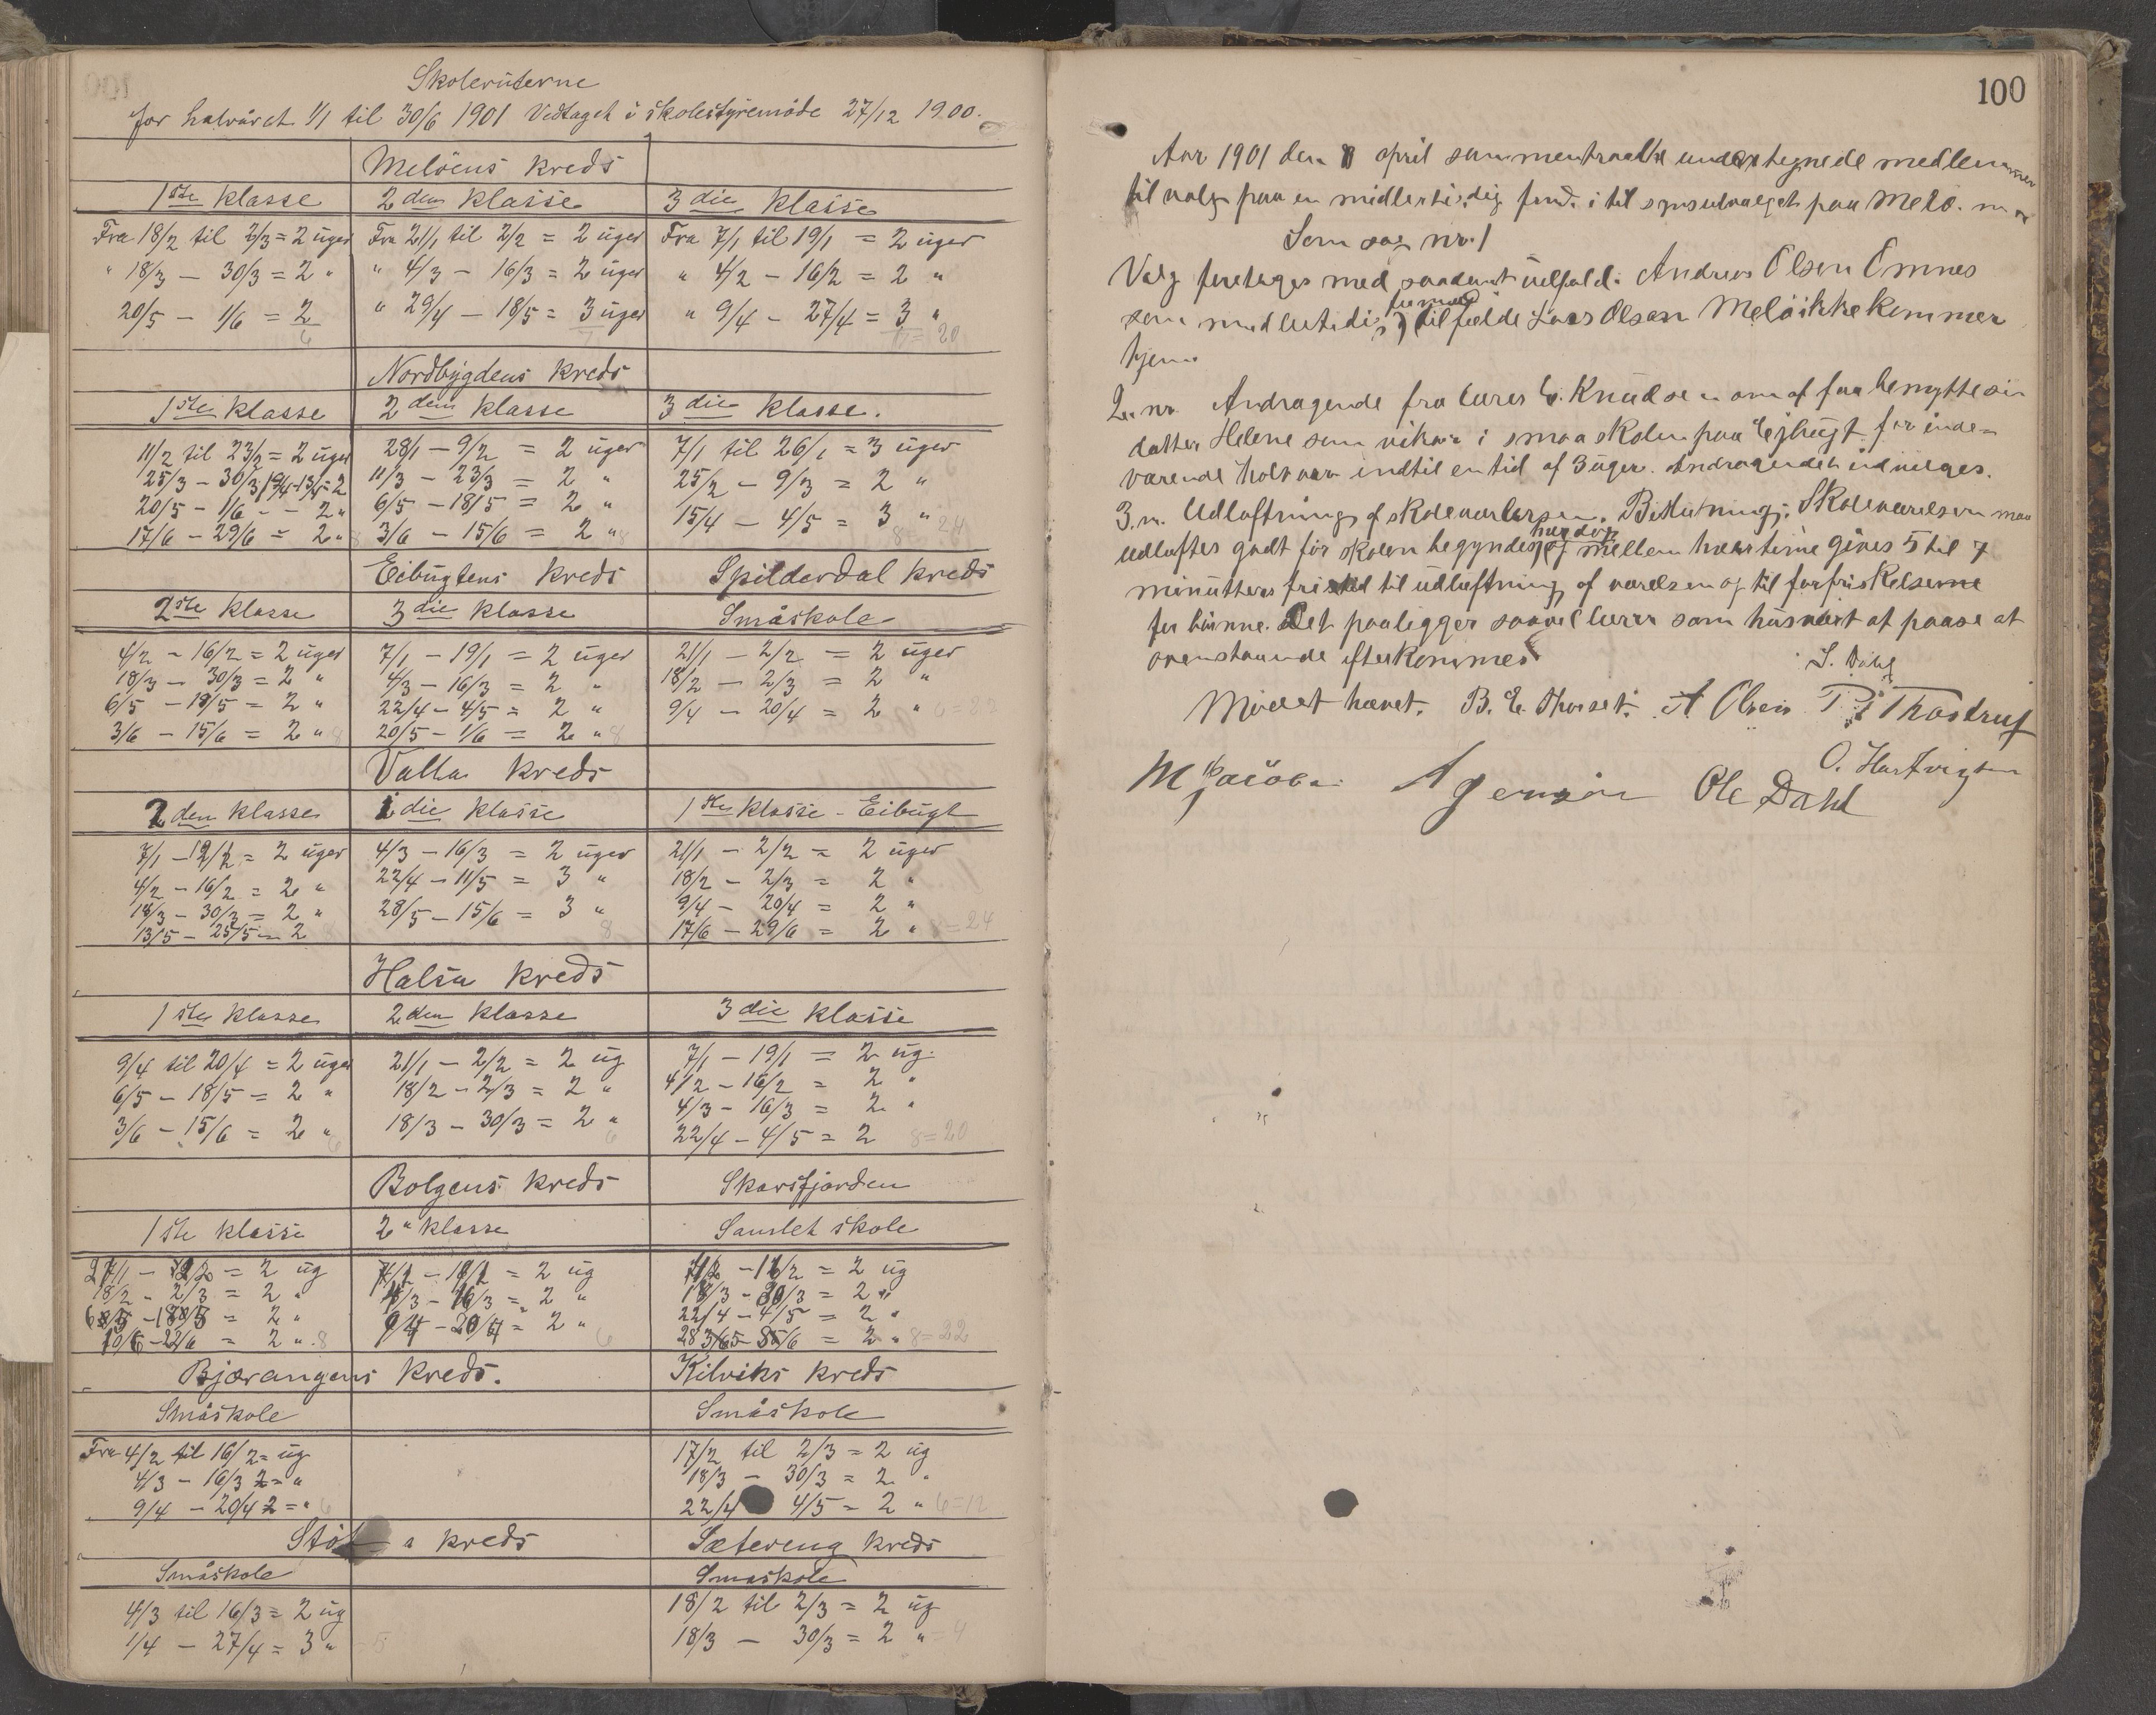 Skoleruterne
for halvåret 1/1 til 30/6 1901 Vedtaget i skolestyremöde 27/12 1900.
Melöens kreds
1ste klasse 2den klasse 3die klasse
Fra 18/2 til 2/3 = 2 uger Fra 21/1 til 2/2 = 2 uger Fra 7/1 til 19/1 = 2 uger
" 18/3 — 30/3 = 2 " " 4/3 — 16/3 = 2 uger " 4/2 — 16/2 = 2 "
20/5 — 1/6 = 2 " 29/4 — 18/5 = 3 uger " 9/4 — 27/4 = 3 "
6 7 = 20
Nordbygdens kreds
1ste klasse 2den klasse 3die klasse.
11/2 til 23/2 = 2 uger 28/1 — 9/2 = 2 uger 7/1 til 26/1 = 3 uger
25/3 — 30/3 11/3 — 23/3 = 2 " 25/2 — 9/3 = 2 "
20/5 — 1/6 — 2 " 6/5 — 18/5 = 2 " 15/4 — 4/5 = 3 "
17/6 — 29/6 = 2 " 8 3/6 — 15/6 = 2 " 8 8 = 24
Eibugtens kreds Spilderdal kreds
2ste klasse 3die klasse Småskole
4/2 — 16/2 = 2 uger 7/1 — 19/1 = 2 uger 21/1 — 2/2 = 2 uger
18/3 — 30/3 = 2 " 4/3 — 16/3 = 2 " 18/2 — 2/3 = 2 "
6/5 — 18/5 = 2 " 22/4 — 4/5 = 2 " 9/4 — 20/4 = 2 "
3/6 — 15/6 = 2 " 8 20/5 — 1/6 = 2 " 8
Valla kreds
2den klasse 1die klasse 1ste klasse — Eibugt
7/1 — = 2 uger 4/3 — 16/3 = 2 uger 21/1 — 2/2 = 2 uger
4/2 — 16/2 = 2 " 22/4 — 11/5 = 3 " 18/2 — 2/3 = 2 "
18/3 — 30/3 = 2 " 28/5 — 15/6 = 3 " 9/4 — 20/4 = 2 "
13/5 — 25/5 — 2 8 17/6 — 29/6 = 2 " 8 = 24
Halsa kreds
1ste klasse 2den klasse 3die klasse
9/4 til 20/4 = 2 uger 21/1 — 2/2 = 2 ug 7/1 — 19/1 = 2 ug.
6/5 — 18/5 = 2 " 18/2 — 2/3 = 2 " 4/2 — 16/2 = 2 "
3/6 — 15/6 = 2 " 18/3 — 30/3 = 2 " 4/3 — 16/3 = 2 "
6 6 22/4 — 4/5 = 2 8 = 20
Bolgens kreds Skarsfjorden
1ste klasse 2 " klasse Samlet skole
= 2 ug = 2 ug = 2 ug
18/2 — 2/3 = 2 " 4/3 — 16/3 = 2 " 18/3 — 30/3 = 2 "
= 2 " = 2 " 22/4 — 4/5 = 2 "
10/6 — 22/6 = 2 " 8 6 = 2 " 8 = 22
Bjærangens kreds. Kilviks kreds
Småskole Småskole
Fra 4/2 til 16/2 = ug 17/2 til 2/3 = 2 ug
4/3 — 16/3 2 = " 18/3 — 30/3 = 2 "
9/4 — 20/4 2 = " 6 22/4 4/5 = 2 " 6 = 12
kreds Sætereng kreds
Småskole Småskole
4/3 til 16/3 = 2 ug 18/2 til 2/3 = 2 ug
1/4 — 27/4 = 3 " = 5 18/3 — 30/3 = 2 " = 4
100
Aar 1901 den april sammentraatte undertegnede medlemmer
til valg paa en midlertidig til paa Melö.
Som sag nr. 1
Valg foretages med saadant udfald: Andreas Olsen Ornes
som midlertidig formand i tilfælde Lars Olsen Melö ikke kommer
hjem
2. nr. Andragende fra lærer Knudsen om at faa benytte sin
datter Helene som vikar i smaaskolen paa Ejbugt for inde=
værende halvaar indtil en tid af 3 uger. Andragendet indvilges.
3. n. Udluftning af skoleværelsen. Beslutning: Skoleværelsen maa
udluftes godt för skolen begyndes, og mellem hver time gives 5 til 7
minutters fristed til udluftning af værelsen og til forfriskelserne
for börnne. Det paaligger saavel lærer som husvært at paase at
ovenstaaende efterkommes
S. Dahl
Mödet hævet. B. E. Thorset. A Olsen Thostrup
O. Hartvigsen
M Jacobs. A Jensen Ole Dahl